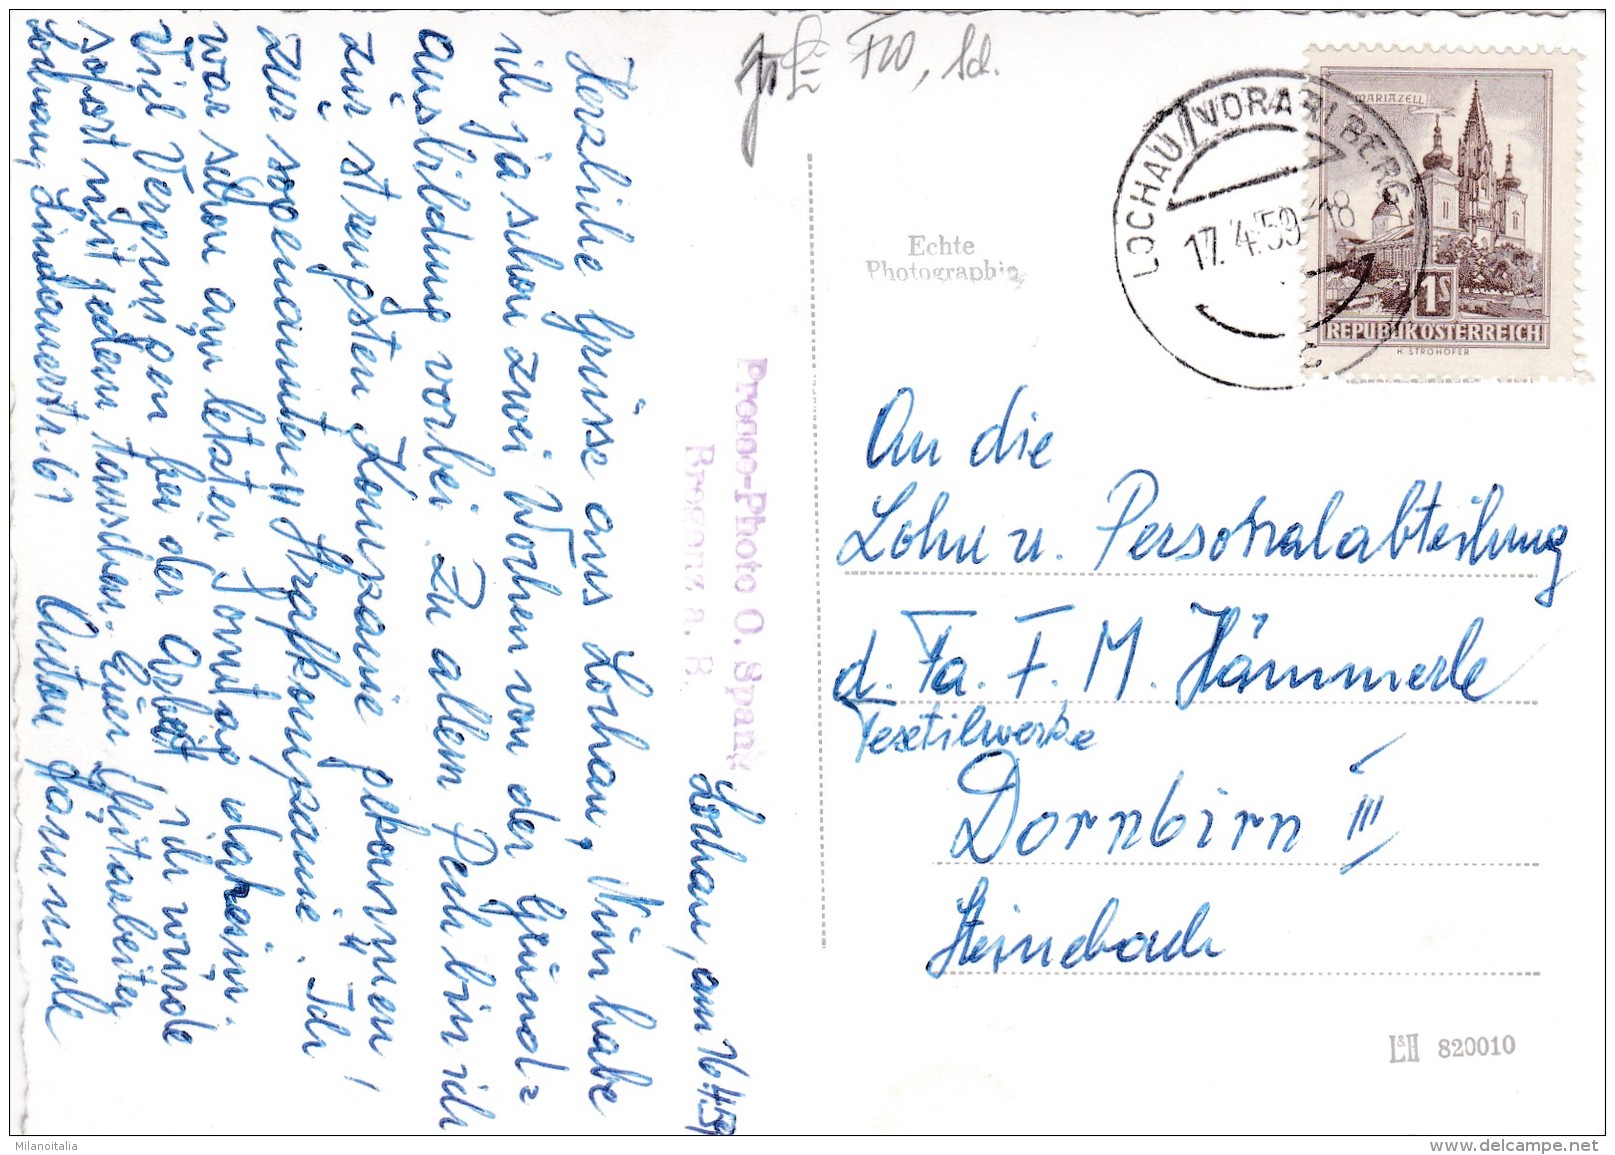 Lochau, am 16.4.59
Herzliche Grüsse aus Lochau, Nun habe
ich ja schon zwei Wochen von der Grund=
ausbildung vorbei. Zu allem Pech bin ich
zur strengsten Kompanie gekommen!
Zur sogenannten "Strafkompanie". Ich
war schon am letzten Sonntag daheim.
Viel Vergnügen bei der Arbeit ich würde
sofort mit jedem tauschen. Euer Mitarbeiter
Lochau, Lindauerstr. 61 Anton Hämmerle
Fw, Sd.
Echte
Photographie
Promo-Photo O. Spang
Bregenz a. B.
LOCHAU / VORARLBERG
17.4.59-18
MARIAZELL
1S
REPUBLIK ÖSTERREICH
H. STROHOFER
An die
Lohn u. Personalabteilung
d. Fa. F. M. Hämmerle
Textilwerke
Dornbirn III
Steinebach
L&H 820010
Milanoitalia
www.delcampe.net